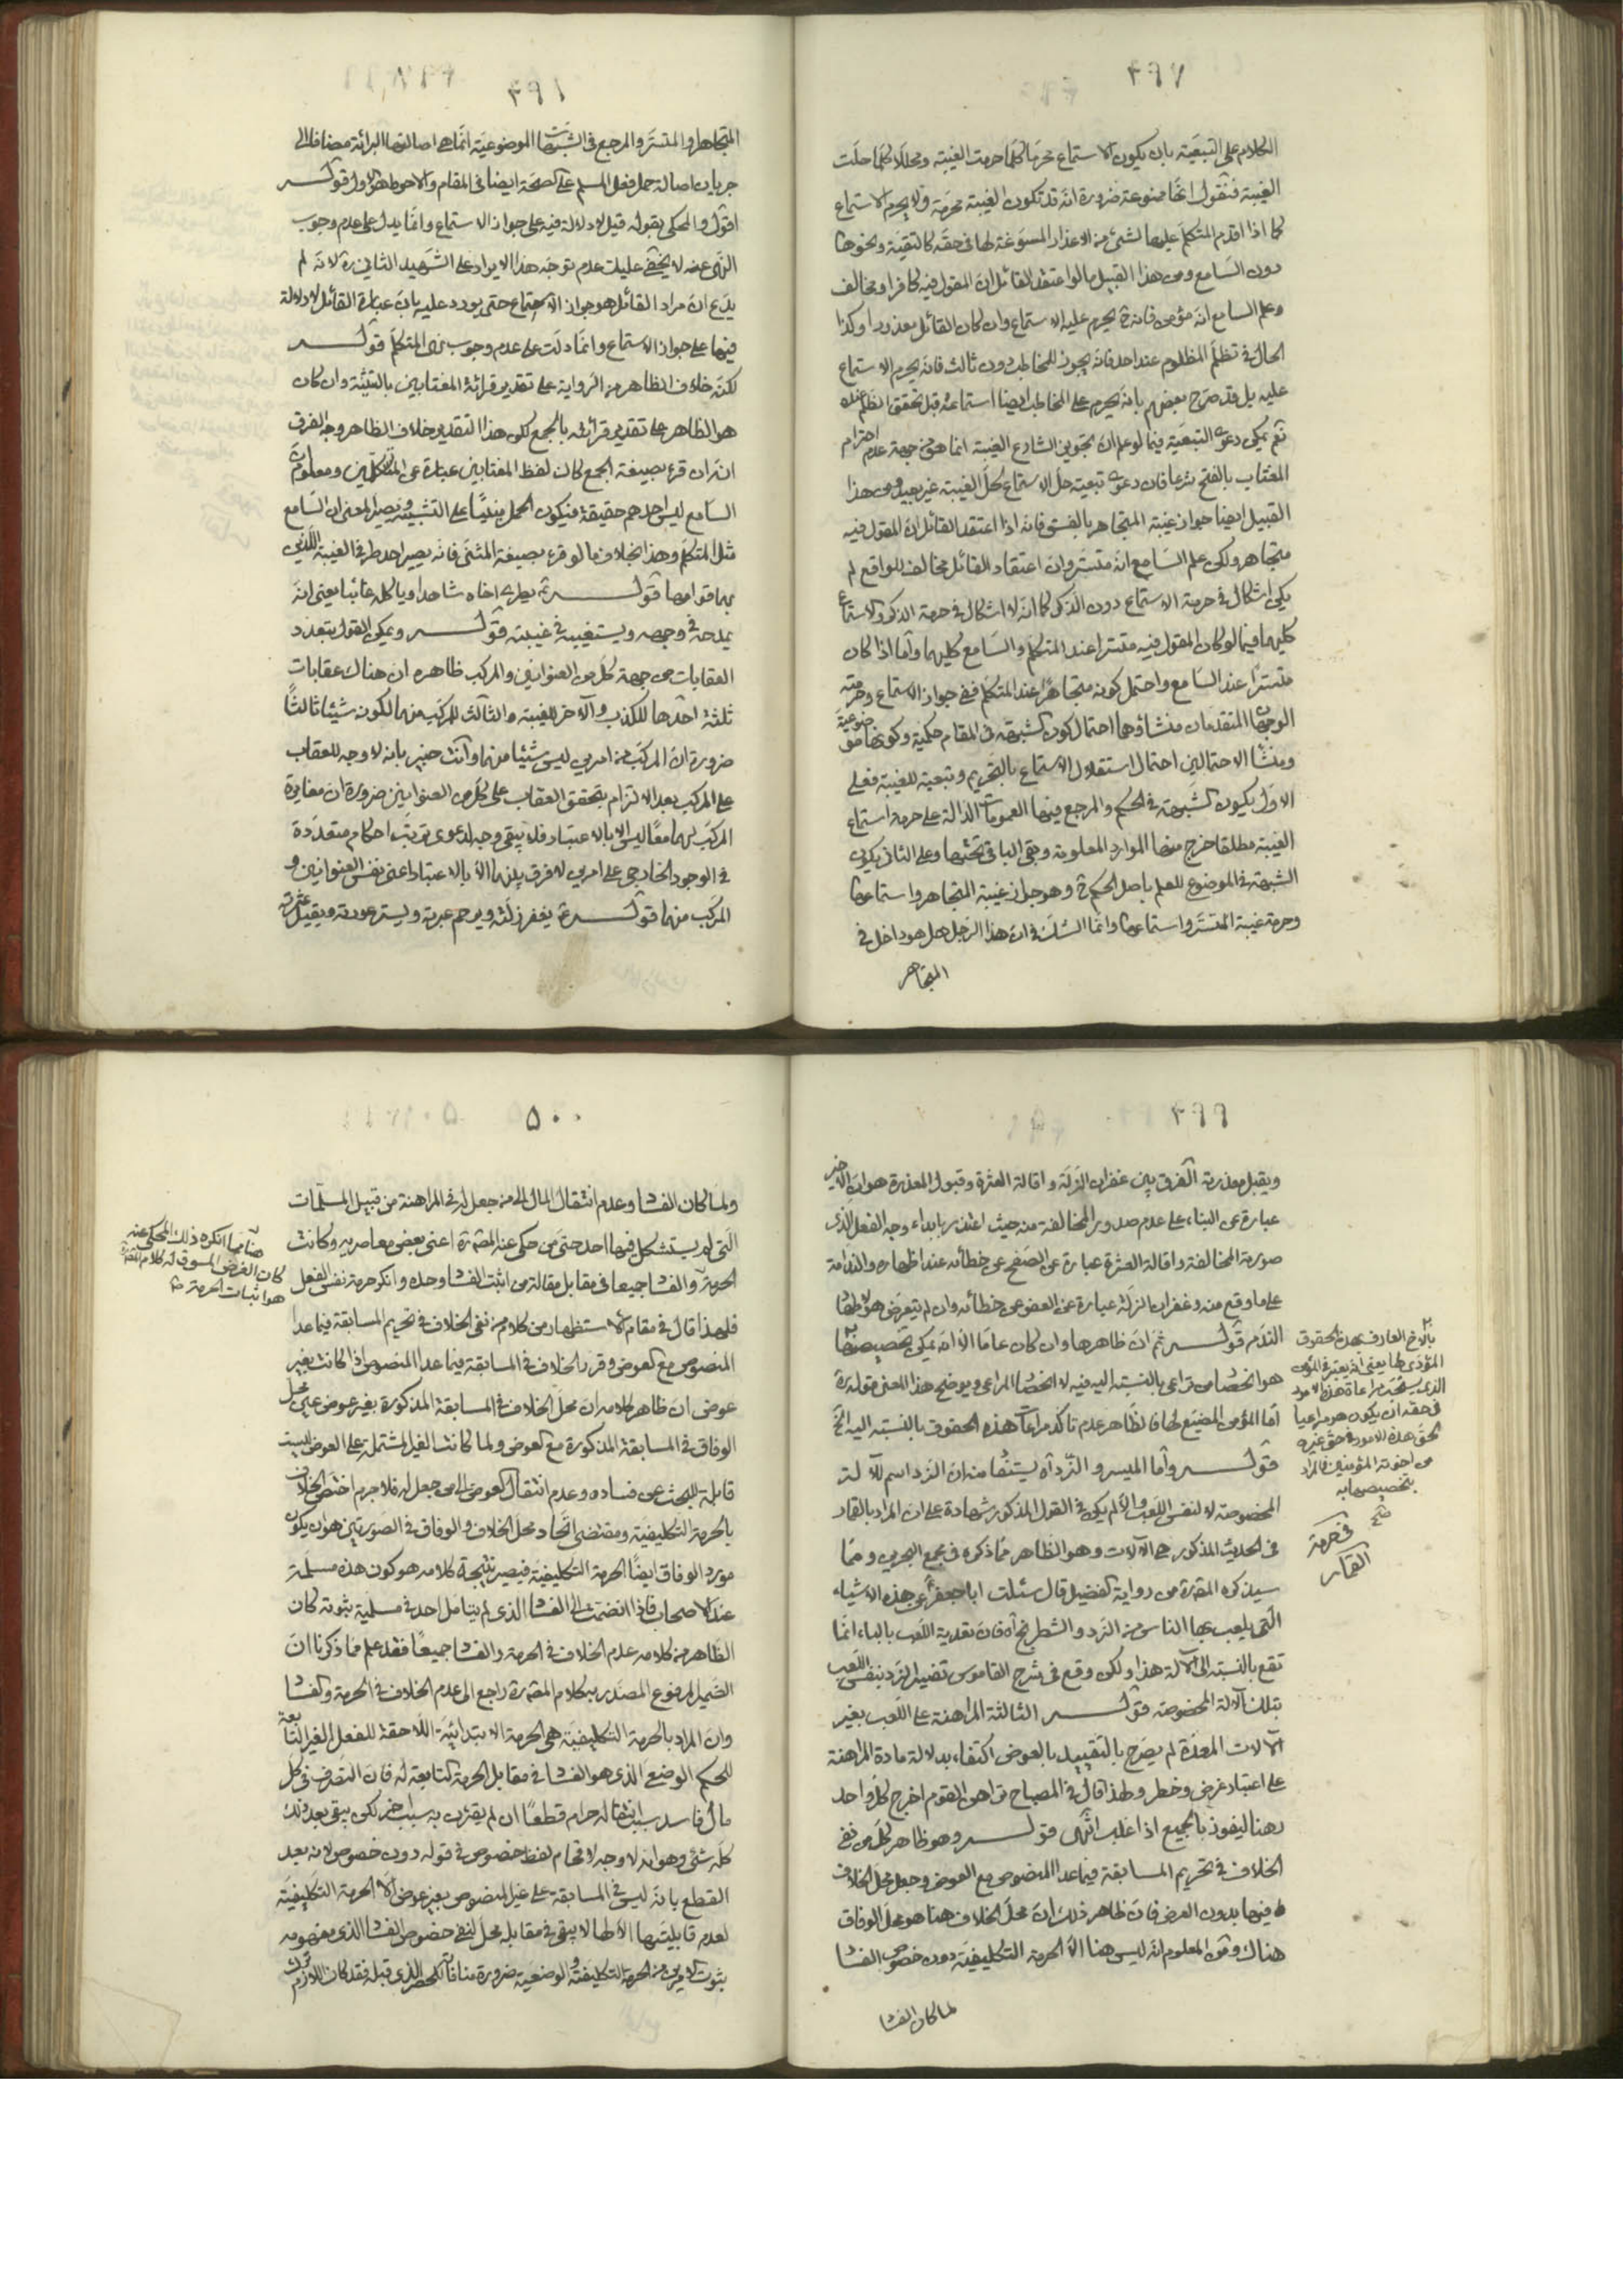 ٤٩٧
الكلام على التبعية بان يكون الاستماع محرما كلما حرمت الغيبة ومحللا كلما حلت
الغيبة فنقول انها ممنوعة ضرورة انه قد تكون الغيبة محرمة ولا يحرم الاستماع
كما اذا اقدم المتكلم عليها لشئ من الاعذار المسوغة لها فى حقه كالتقية ونحوها
دون السامع ومن هذا القبيل ما لو اعتقد القائل ان المقول فيه كافر او مخالف
وعلم السامع انه مؤمن فانه يحرم عليه الاستماع وان كان القائل معذورا وكذا
الحال فى تظلم المظلوم عند احد فانه يجوز للمخاطب دون ثالث فانه يحرم الاستماع
عليه بل قد صرح بعضهم بانه يحرم على المخاطب ايضا استماعه قبل تحقق الظلم عنده
نعم يمكن دعوى التبعية فيما لو علم ان تجويز الشارع الغيبة انما هو من جهة عدم احترام
المغتاب بالفتح شرعا فان دعوى تبعية حل الاستماع لحل الغيبة غير بعيد ومن هذا
القبيل ايضا جواز غيبة المتجاهر بالفسق فانه اذا اعتقد القائل ان المقول فيه
متجاهر ولكن علم السامع انه متستر وان اعتقاد القائل مخالف للواقع لم
يكن اشكال فى حرمة الاستماع دون الذكر كما انه لا اشكال فى حرمة الذكر والاستماع
كليهما فيما لو كان المقول فيه متسترا عند المتكلم والسامع كليهما واما اذا كان
متسترا عند السامع واحتمل كونه متجاهرا عند المتكلم ففى جواز الاستماع وحرمته
الوجهان المتقدمان منشاؤهما احتمال كون الشبهة فى المقام حكمية وكونها موضوعية
ومنشا الاحتمالين احتمال استقلال الاستماع بالتحريم وتبعية للغيبة فعلى
الاول يكون الشبهة فى الحكم والمرجع فيها العمومات الدالة على حرمة استماع
الغيبة مطلقا خرج منها الموارد المعلومة وبقى الباقى تحتها وعلى الثانى يكون
الشبهة فى الموضوع للعلم باصل الحكم وهو جواز غيبة المتجاهر واستماعها
وحرمة غيبة المتستر واستماعها وانما الشك فى ان هذا الرجل هل هو داخل فى
المتجاهر
٤٩٨
المتجاهر او المتستر والمرجع فى الشبهة الموضوعية انما هى اصالة البرائة مضافا الى
جريان اصالة حمل فعل المسلم على الصحة ايضا فى المقام والاحوط هو الاول قوله
اقول والمحكى بقوله قيل لا دلالة فيه على جواز الاستماع وانما يدل على عدم وجوب
النهى عنه لا يخفى عليك عدم توجه هذا الايراد على الشهيد الثانى ره لانه لم
يدع ان مراد القائل هو جواز الاستماع حتى يورد عليه بان عبارة القائل لا دلالة
فيها على جواز الاستماع وانما دلت على عدم وجوب نهى المتكلم قوله
لكنه خلاف الظاهر من الرواية على تقدير قرائة المغتابين بالتثنية وان كان
هو الظاهر على تقدير قرائته بالجمع لكن هذا التقدير خلاف الظاهر وجه الفرق
انه ان قرء بصيغة الجمع كان لفظ المغتابين عبارة عن المتكلمين ومعلوم ان
السامع ليس احدهم حقيقة فيكون الحمل مبنيا على التشبيه ويصير المعنى ان السامع
مثل المتكلم وهذا بخلاف ما لو قرء بصيغة المثنى فانه يصير احد طرفى الغيبة اللذين
بهما قوامها قوله ثم يطرى اخاه شاهدا وياكله غائبا يعنى انه
يمدحه فى وجهه ويستغيبه فى غيبته قوله ويمكن القول بتعدد
العقابات من جهة كل من العنوانين والمركب ظاهره ان هناك عقابات
ثلثة احدها للكذب والآخر للغيبة والثالث للمركب منهما لكونه شيئا ثالثا
ضرورة ان المركب من امرين ليس شيئا منهما وانت خبير بانه لا وجه للعقاب
على المركب بعد الالتزام بتحقق العقاب على كل من العنوانين ضرورة ان مغايرة
المركب لهما معا ليس الا بالاعتبار فلا يبقى وجه لدعوى ترتب احكام متعددة
فى الوجود الخارجى على امرين لا فرق بينهما الا بالاعتبار اعنى نفس العنوانين و
المركب منهما قوله يغفر زلته ويرحم عبرته ويستر عورته ويقيل عثرته
٤٩٩
ويقبل معذرته الفرق بين غفران الزلة واقالة العثرة وقبول المعذرة هو ان الاخير
عبارة عن البناء على عدم صدور المخالفة منه حيث اعتذر بابداء وجه الفعل الذى
صورته المخالفة واقالة العثرة عبارة عن الصفح عن خطائه عند اظهاره الندامة
على ما وقع منه وغفران الزلة عبارة عن العفو عن خطائه وان لم يتعرض هو لاظهار
الندم قوله ثم ان ظاهرها وان كان عاما الا انه يمكن تخصيصها
بالاخ العارف بهذه الحقوق
المؤدى لها يعنى انه يعتبر فى المؤمن
الذى يستحق مراعاة هذه الامور
فى حقه ان يكون هو مراعيا
لحق هذه الامور فى حق غيره
من اخوته المؤمنين فالمراد
بتخصيصها به
صح
هو اختصاص تراعى بالنسبة اليه فيه لا اختصاص المراعى ويوضح هذا المعنى قوله ره
اما المؤمن المضيع لها فالظاهر عدم تاكد مراعات هذه الحقوق بالنسبة اليه الخ
فى حرمة
القمار
قوله واما الميسر والنرد اه يستفاد منه ان النرد اسم للآلة
المخصوصة لا لنفس اللعب والا لم يكن فى القول المذكور شهادة على ان المراد بالقمار
فى الحديث المذكور هى الآلات وهو الظاهر مما ذكره فى مجمع البحرين ومما
سيذكره المصنف ره من رواية الفضيل قال سئلت ابا جعفر ع عن هذه الاشياء
التى يلعب بها الناس من النرد والشطرنج اه فان تعدية اللعب بالباء انما
تقع بالنسبة الى الآلة هذا ولكن وقع فى شرح القاموس تفسير النرد بنفس اللعب
بتلك الآلة المخصوصة قوله الثالثة المراهنة على اللعب بغير
الآلات المعدة لم يصرح بالتقييد بالعوض اكتفاء بدلالة مادة المراهنة
على اعتبار غرض وخطر ولهذا قال فى المصباح تراهن القوم اخرج كل واحد
رهنا ليفوز بالجميع اذا غلب انتهى قوله وهو ظاهر كل من نفى
الخلاف فى تحريم المسابقة فيما عدا المنصوص مع العوض وجعل محل الخلاف
فيها بدون العوض فان ظاهر ذلك ان محل الخلاف هنا هو محل الوفاق
هناك ومن المعلوم انه ليس هنا الا الحرمة التكليفية دون خصوص الفساد
لما كان الفساد
٥٠٠
ولما كان الفساد وعدم انتقال المال الى من جعل له فى المراهنة من قبيل المسلمات
التى لم يستشكل فيها احد حتى من حكى عنه المصنف ره اعنى بعض معاصريه وكانت
هنا مما انكره ذلك المحكى عنه
كان الغرض المسوق له كلام المصنف ره
هو اثبات الحرمة صح
الحرمة والفساد جميعا فى مقابل مقالة من اثبت الفساد وحده وانكر حرمة نفس الفعل
فلهذا قال فى مقام الاستظهار من كلام من نفى الخلاف فى تحريم المسابقة فيما عدا
المنصوص مع العوض وقرر الخلاف فى المسابقة فيما عدا المنصوص اذا كانت بغير
عوض ان ظاهر كلامه ان محل الخلاف فى المسابقة المذكورة بغير عوض عين محل
الوفاق فى المسابقة المذكورة مع العوض ولما كانت الغير المشتملة على العوض ليست
قابلة للبحث عن فساده وعدم انتقال العوض الى من جعل له فلا جرم اختص الخلاف
بالحرمة التكليفية ومقتضى اتحاد محل الخلاف والوفاق فى الصورتين هو ان يكون
مورد الوفاق ايضا الحرمة التكليفية فيصير نتيجة كلامه هو كون هذه مسلمة
عند الاصحاب فاذا انضمت الى الفساد الذى لم يتامل احد فى مسلمية ثبوته كان
الظاهر من كلامه عدم الخلاف فى الحرمة والفساد جميعا فقد علم مما ذكرنا ان
الضمير المرفوع المصدر به كلام المصنف ره راجع الى عدم الخلاف فى الحرمة والفساد
وان المراد بالحرمة التكليفية هى الحرمة الابتدائية اللاحقة للفعل الغير التابعة
للحكم الوضعى الذى هو الفساد فى مقابل الحرمة التابعة له فان التصرف فى كل
مال فاسد سبب انتقاله حرام قطعا ان لم يقترن به سبب اخر لكن يبقى بعد ذلك
كله شئ وهو انه لا وجه لاقحام لفظ خصوص فى قوله دون خصوص لانه بعد
القطع بانه ليس فى المسابقة على غير المنصوص بغير عوض الا الحرمة التكليفية
لعدم قابليتها الا لها لا يبقى فى مقابله محل لنفى خصوص الفساد الذى مفهومه
ثبوت الامرين من الحرمة التكليفية والوضعية ضرورة منافاته للحصر الذى قبله فقد كان اللازم